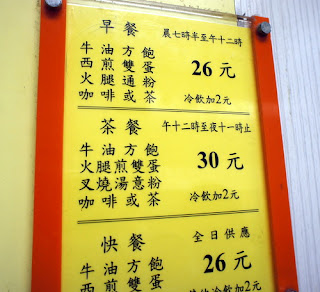 早餐 晨七時半至午十二時
牛油方飽
西煎雙蛋
火腿通粉 26元
咖啡或茶 冷飲加2元
茶餐 午十二時至夜十一時止
牛油方飽
火腿煎雙蛋 30元
叉燒湯意粉
咖啡或茶 冷飲加2元
快餐 全日供應
牛油方飽 26元
火腿煎雙蛋 冷飲加2元